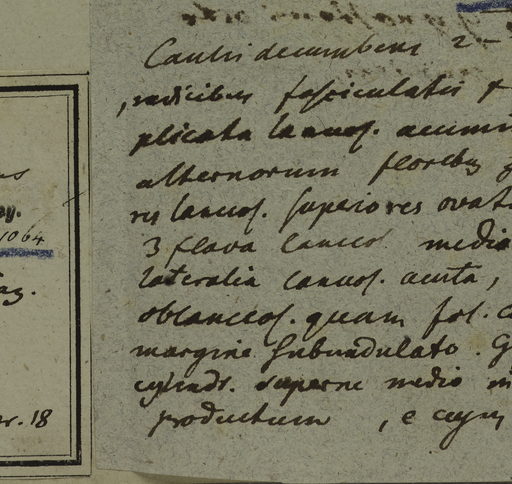 Caulis decumbens 2-
radicibus fasciculatis &
plicata lanceol. acumi
alternorum floribus
ris lanceol. superiores ovat
3 flava lanceol medio
lateralia lanceol. acuta,
oblanceol. quam fol.
margine subundulato. G
cylindr. superne medio in
productum , e
1064
r. 18